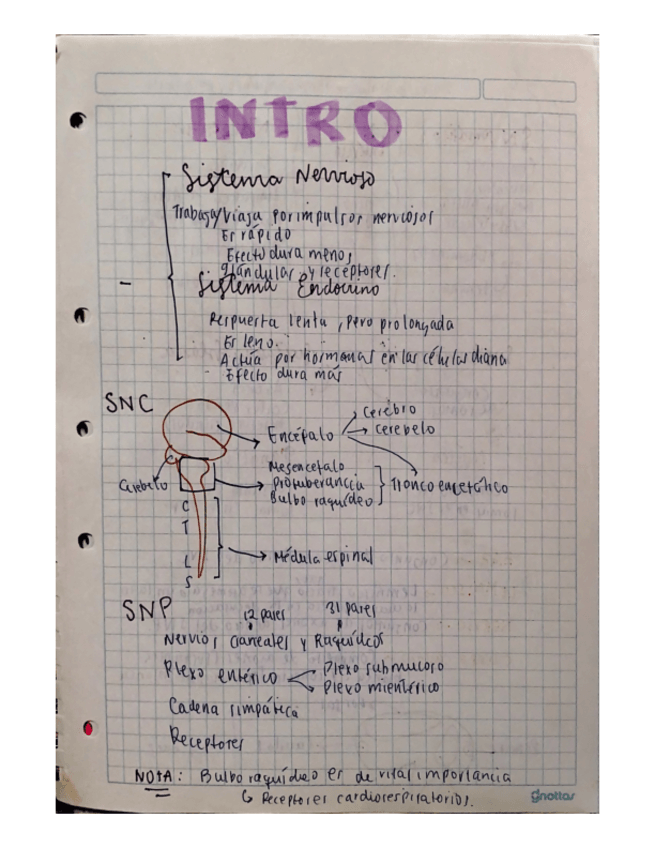 INTRO
Sistema Nervioso
Trabaja/Viaja por impulsos nerviosos
Es rápido
Efecto dura menos
glándulas y receptores.
- Sistema Endocrino
Respuesta lenta, pero prolongada
Es leno.
Actúa por hormonas en las células diana
Efecto dura más
SNC
Cerebro
Encéfalo
cerebelo
Mesencefalo
Cerebelo
protuberancia
Tronco encefálico
Bulbo raquídeo
C
T
L
S
Médula espinal
SNP
12 pares
31 pares
Nervios Craneales y Raquídeos
Plexo entérico
Plexo submucoso
Plexo mientérico
Cadena simpática
Receptores
NOTA: Bulbo raquídeo es de vital importancia
Receptores cardiorespiratorios.
gnottas